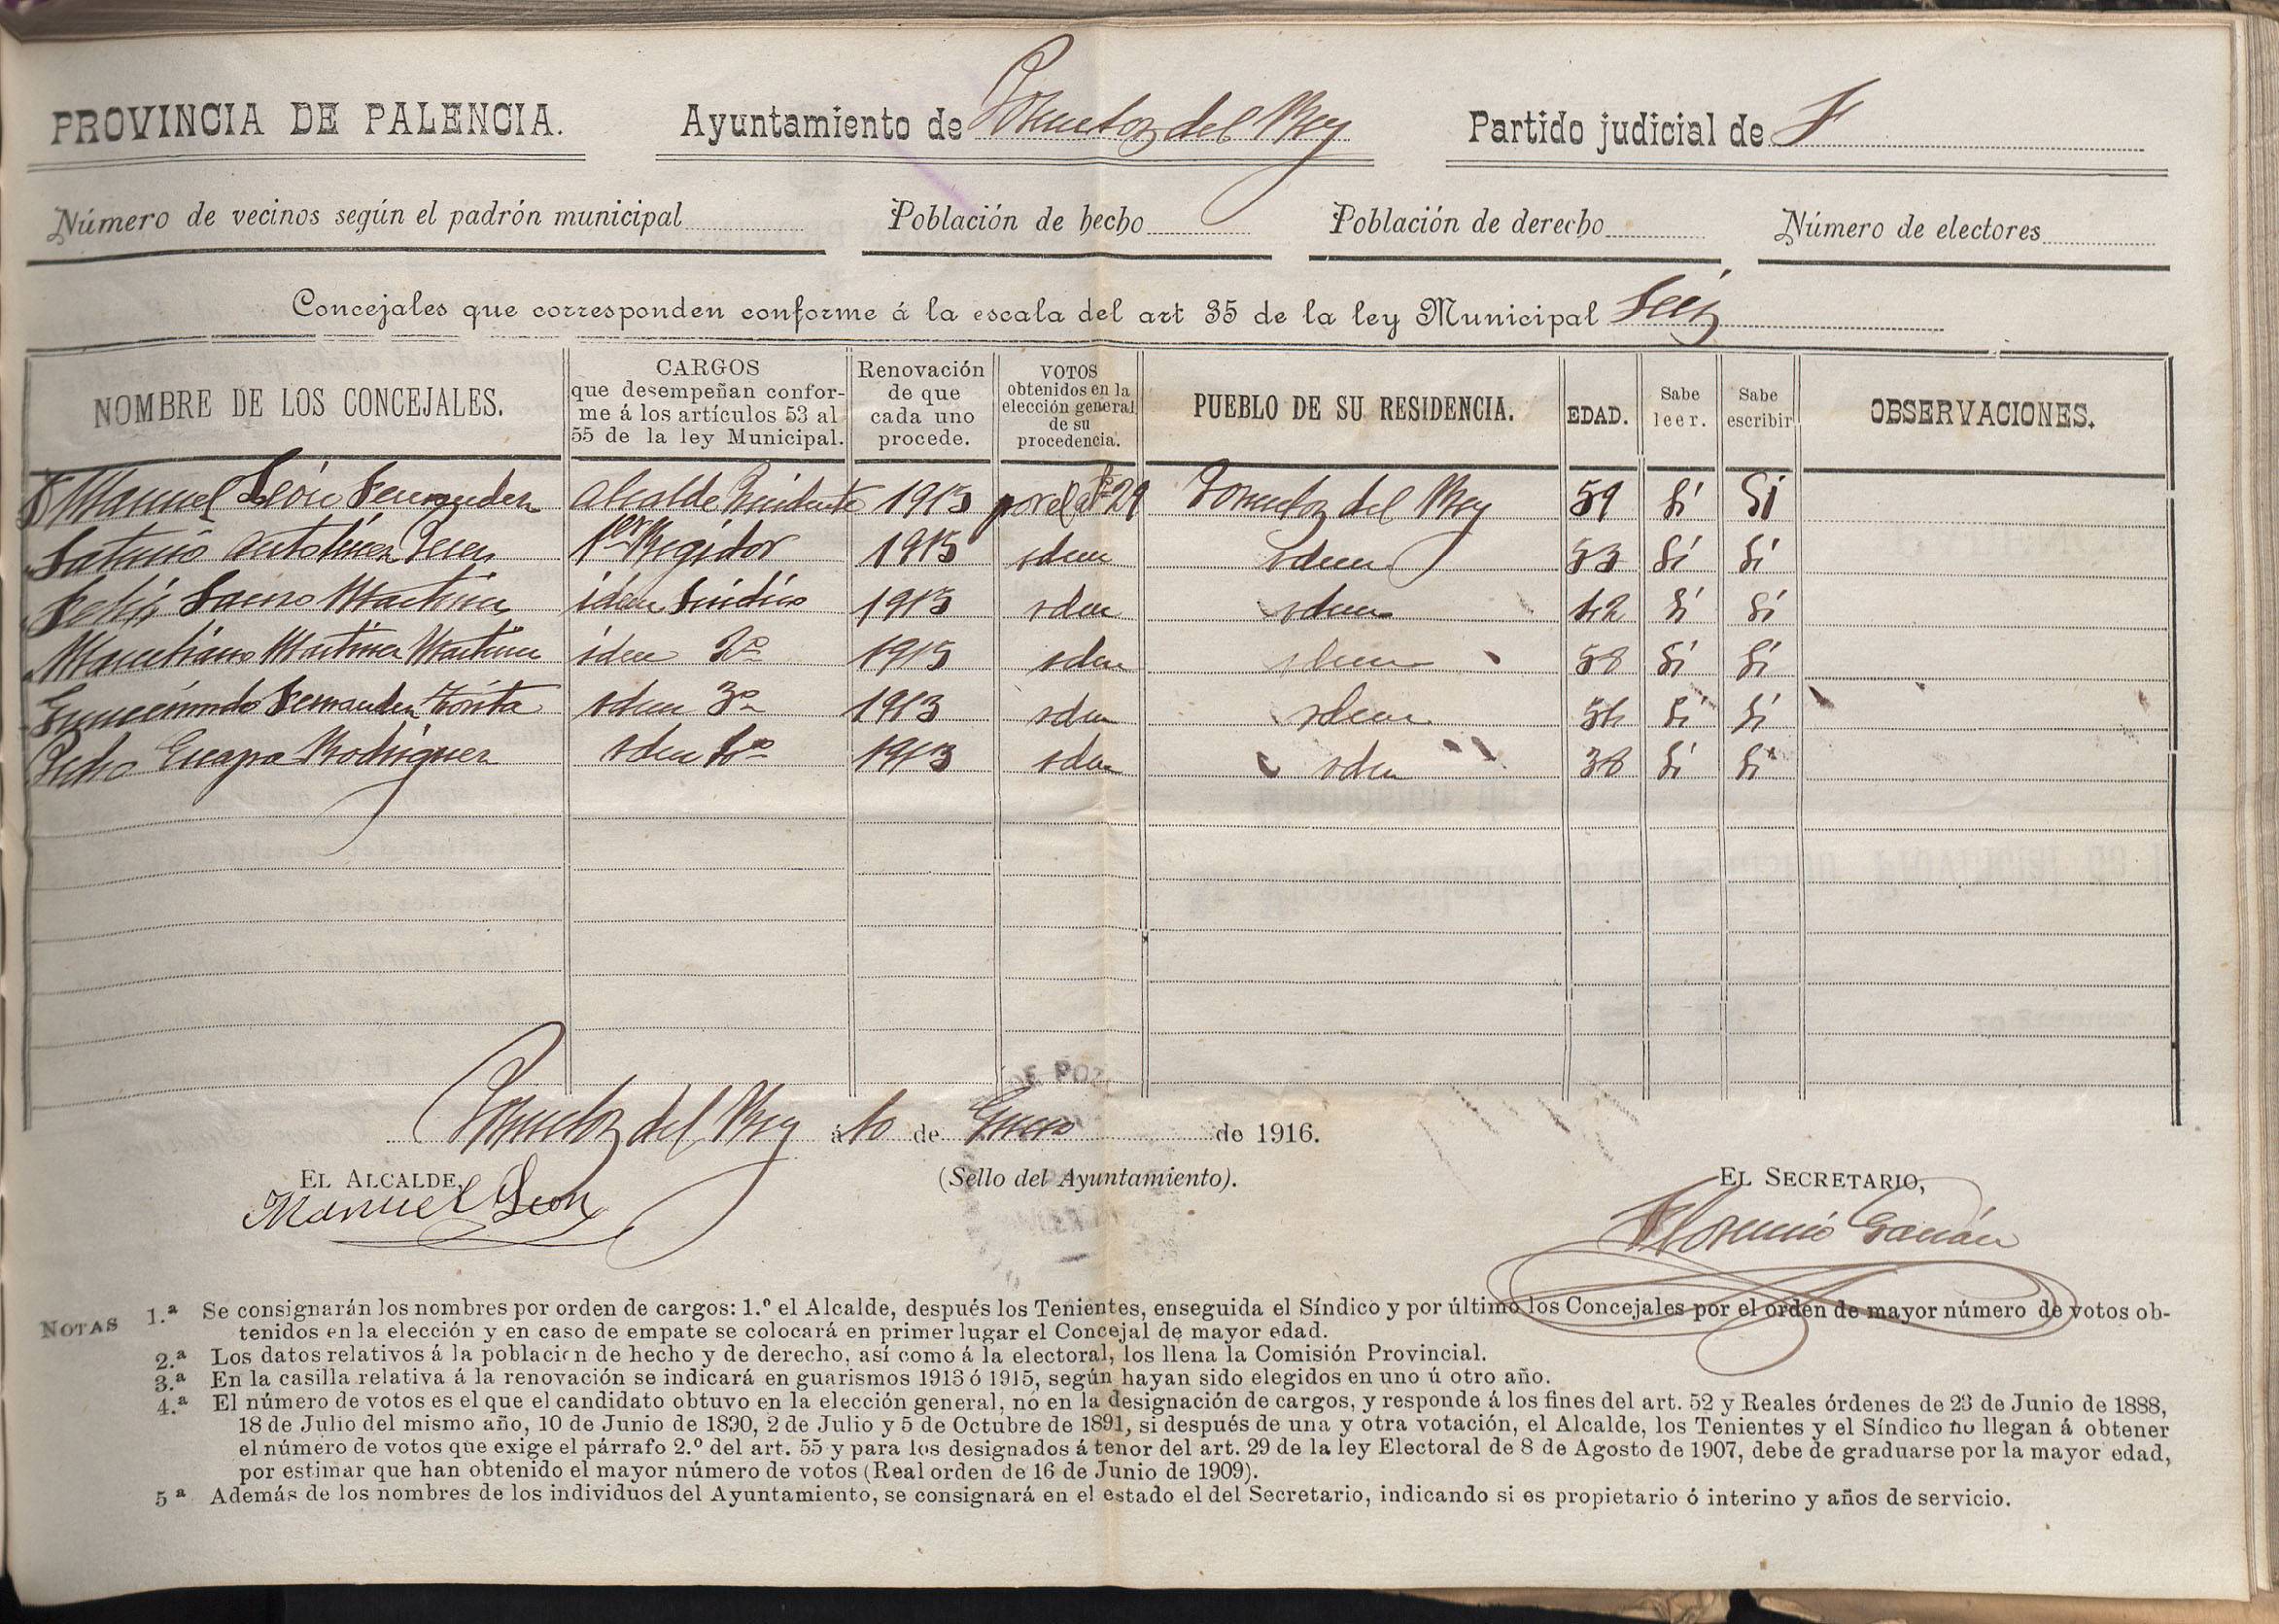 PROVINCIA DE PALENCIA. Ayuntamiento de Pozuelos del Rey Partido judicial de F
Número de vecinos según el padrón municipal Población de hecho Población de derecho Número de electores
Concejales que corresponden conforme á la escala del art 35 de la ley Municipal Seis
NOMBRE DE LOS CONCEJALES.
CARGOS
que desempeñan confor-
me á los artículos 53 al
55 de la ley Municipal.
Renovación
de que
cada uno
procede.
VOTOS
obtenidos en la
elección general
de su
procedencia.
PUEBLO DE SU RESIDENCIA.
EDAD.
Sabe
leer.
Sabe
escribir
OBSERVACIONES.
Manuel León Fernandez Alcalde Presidente 1915 por el At 29 Pozuelos del Rey 59 Sí Sí
Saturio Antolinez Perez 1er Regidor 1915 idem idem 53 Sí Sí
Felix Martinez idem Sindico 1915 idem idem 42 Sí Sí
Marceliano Martinez Martinez idem 2º 1915 idem idem 58 Sí Sí
Gumecindo Fernandez Zorita idem 3º 1913 idem idem 54 Sí Sí
Pedro Guapo Rodriguez idem 4º 1913 idem idem 38 Sí Sí
DE POZ
Pozuelos del Rey á 10 de Enero de 1916.
EL ALCALDE, (Sello del Ayuntamiento). EL SECRETARIO,
Manuel Leon Florencio Gañán
NOTAS 1.ª Se consignarán los nombres por orden de cargos: 1.º el Alcalde, después los Tenientes, enseguida el Síndico y por último los Concejales por el orden de mayor número de votos ob-
tenidos en la elección y en caso de empate se colocará en primer lugar el Concejal de mayor edad.
2.ª Los datos relativos á la población de hecho y de derecho, así como á la electoral, los llena la Comisión Provincial.
3.ª En la casilla relativa á la renovación se indicará en guarismos 1913 ó 1915, según hayan sido elegidos en uno ú otro año.
4.ª El número de votos es el que el candidato obtuvo en la elección general, no en la designación de cargos, y responde á los fines del art. 52 y Reales órdenes de 23 de Junio de 1888,
18 de Julio del mismo año, 10 de Junio de 1890, 2 de Julio y 5 de Octubre de 1891, si después de una y otra votación, el Alcalde, los Tenientes y el Síndico no llegan á obtener
el número de votos que exige el párrafo 2.º del art. 55 y para los designados á tenor del art. 29 de la ley Electoral de 8 de Agosto de 1907, debe de graduarse por la mayor edad,
por estimar que han obtenido el mayor número de votos (Real orden de 16 de Junio de 1909).
5ª Además de los nombres de los individuos del Ayuntamiento, se consignará en el estado el del Secretario, indicando si es propietario ó interino y años de servicio.